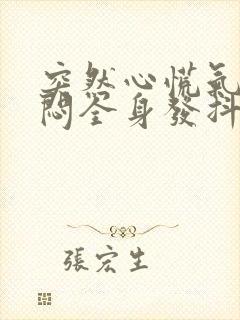 突然心慌氣
悶全身發抖
張宏生